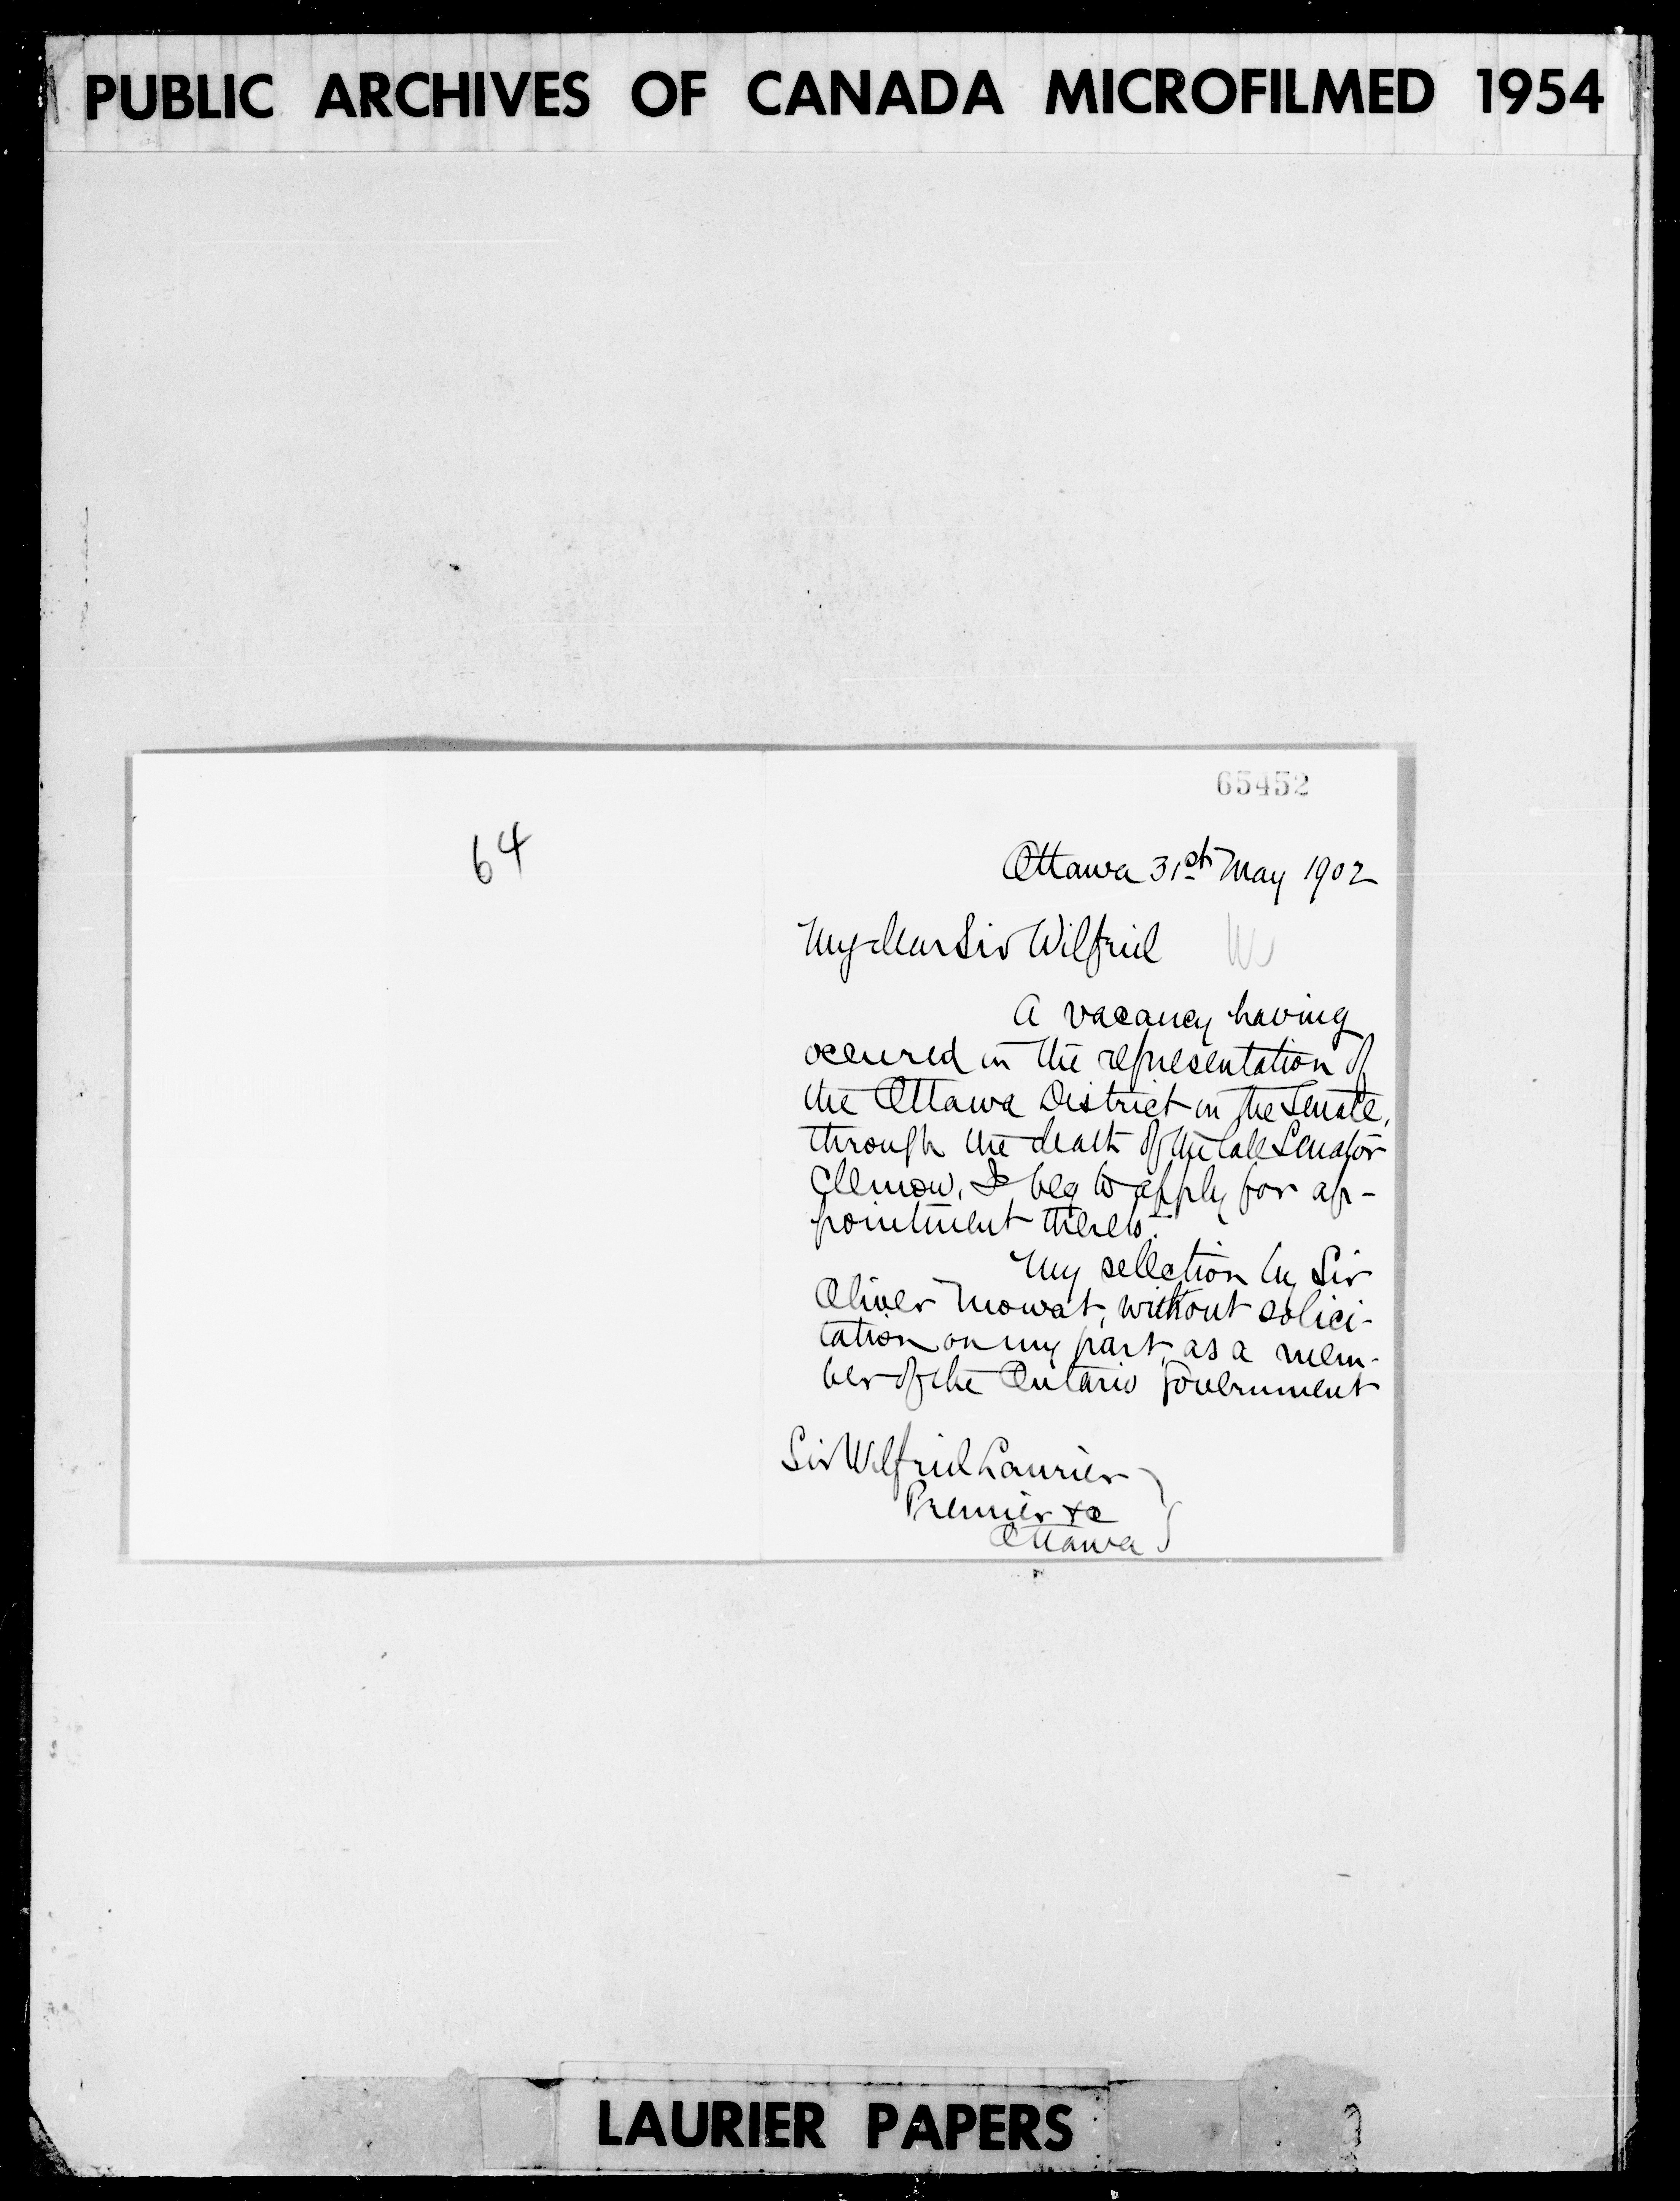 PUBLIC ARCHIVES OF CANADA MICROFILMED 1954
65452
64
Ottawa 31st May 1902
My dear Sir Wilfrid
A vacancy having
occured in the representation of
the Ottawa District in the Senate,
through the death of the late Senator
Clemow, I beg to apply for ap-
pointment thereto.
My selection by Sir
Oliver Mowat, without solici-
tation on my part, as a mem-
ber of the Ontario Government
Sir Wilfrid Laurier
Premier &c
Ottawa
LAURIER PAPERS